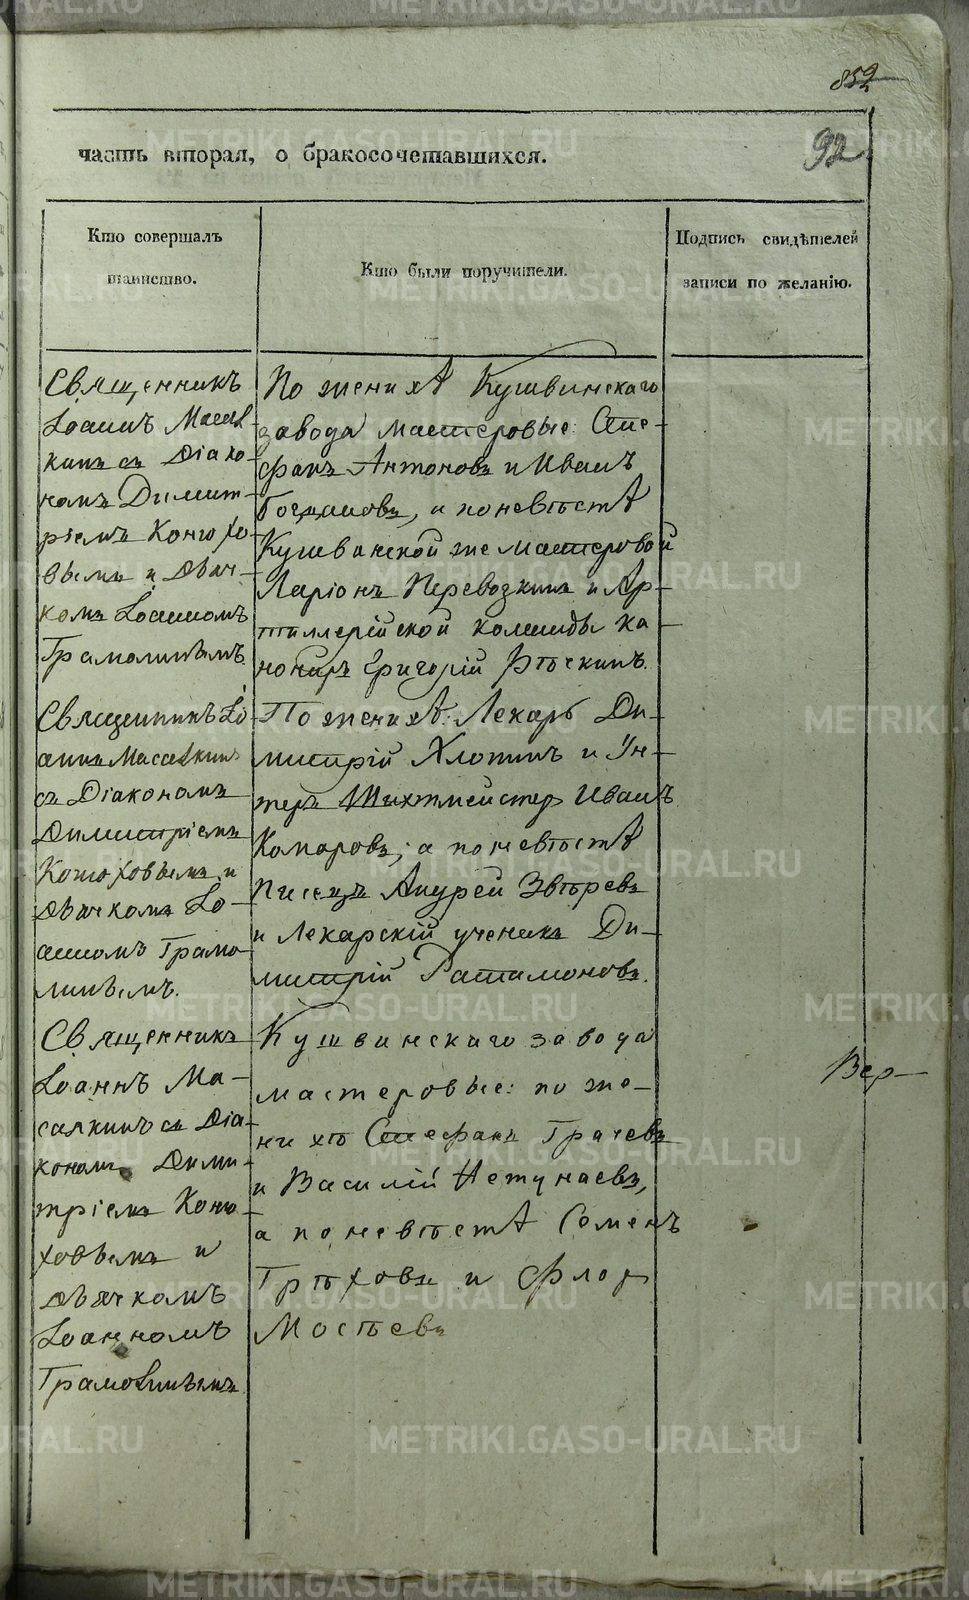 852
часть вторая, о бракосочетавшихся.
92
Кто совершалъ
таинство.
Кто были поручители.
Подпись свидѣтелей
записи по желанію.
Священникъ
Іоаннъ Масал
кинъ съ Діако-
номъ Димит-
ріемъ Конюхо-
вымъ и Дьяч-
комъ Іоанномъ
Грамолинымъ.
По женихѣ Кушвинскаго
завода мастеровые: Сте-
фанъ Антоновъ и Иванъ
и по невѣстѣ
Кушвинской же мастеровой
Ларіонъ Перевозкинъ и Ар-
тиллерійской команды ка-
нониръ Григорій
Священникъ Іо
аннъ Масалкинъ
съ Діакономъ
Димитріемъ
Конюховымъ и
Дьячкомъ Іо-
анномъ Грамо-
линымъ.
По женихѣ: Лекарь Ди-
митрій Хлопинъ и Ун-
теръ Шихтмейстеръ Иванъ
Комаровъ; а по невѣстѣ
Писецъ Андрей Звѣревъ
и Лекарскій ученикъ Ди-
митрій Ратамоновъ.
Священникъ
Іоаннъ Ма-
салкинъ съ Діа-
кономъ Дими-
тріемъ Коню-
ховымъ и
Дьячкомъ
Іоанномъ
Грамолинымъ
Кушвинскаго завода
мастеровые: по же-
нихѣ Стефанъ Грачевъ
и Василій Нетунаевъ,
а по невѣстѣ Семенъ
Грѣховъ и Флоръ
Мостѣевъ
Вер-
METRIKI.GASO-URAL.RU